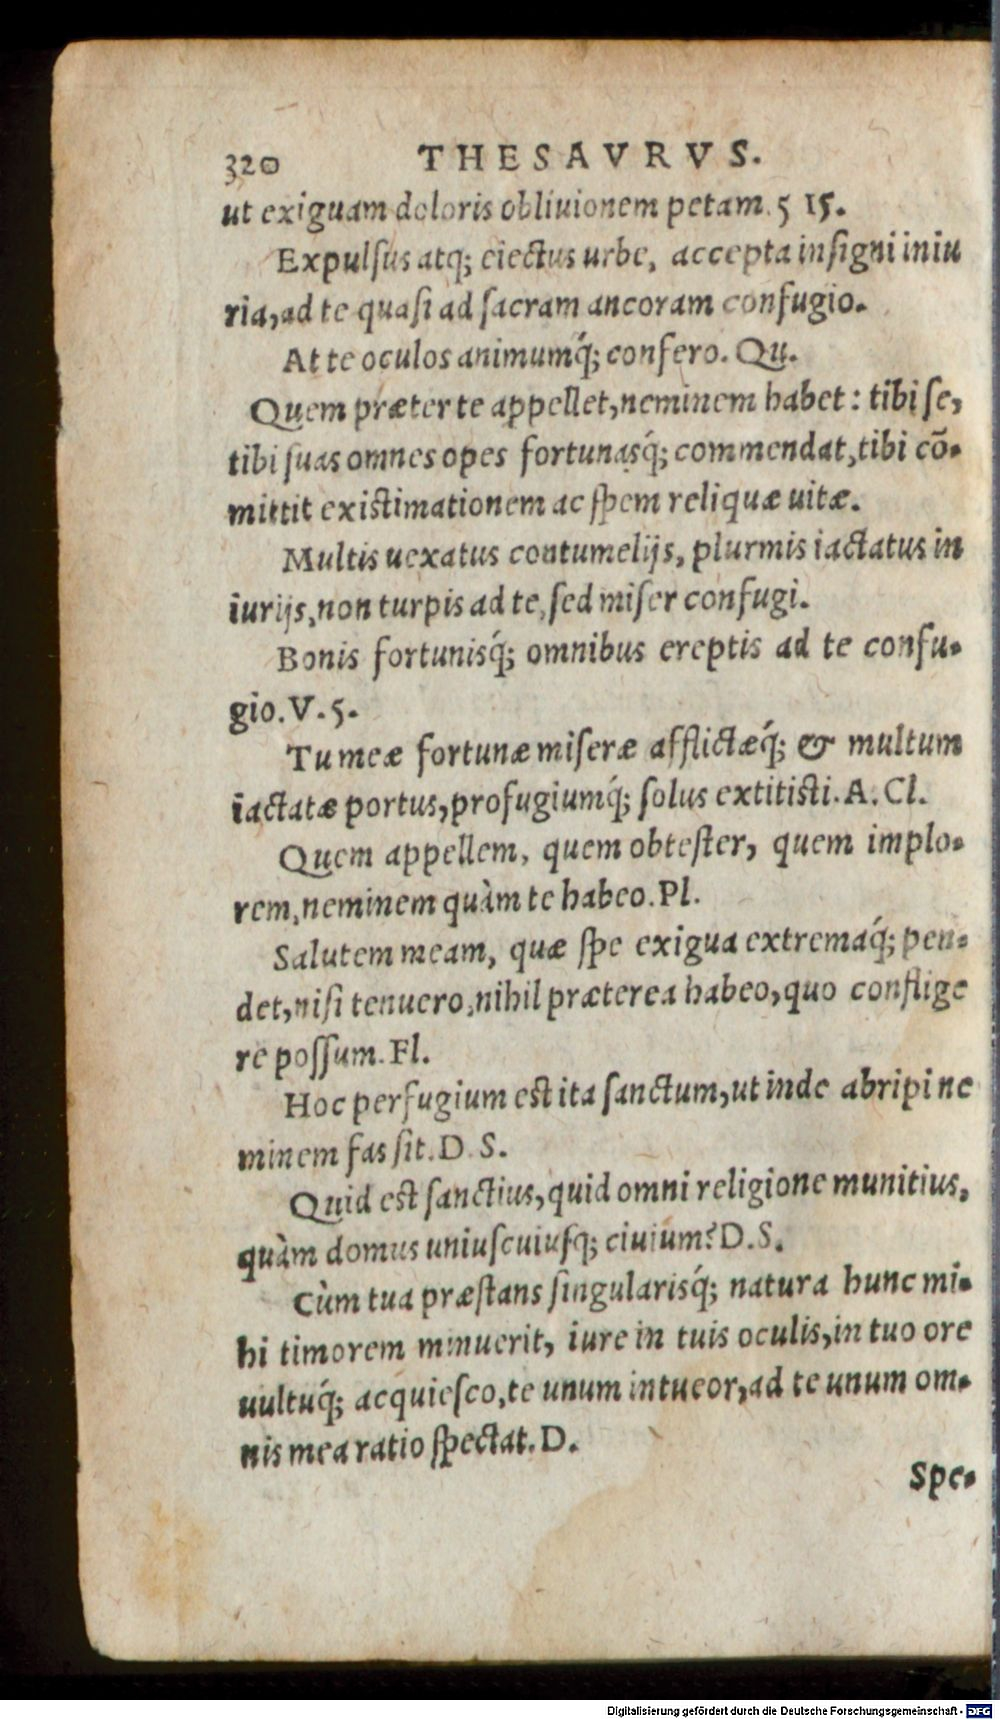 320 THESAVRVS.
ut exiguam doloris obliuionem petam. 5 15.
Expulsus atq; eiectus urbe, accepta insigni iniu
ria, ad te quasi ad sacram ancoram confugio.
At te oculos animumq́; confero. Qu.
Quem præter te appellet, neminem habet: tibi se,
tibi suas omnes opes fortunasq́; commendat, tibi cõ-
mittit existimationem ac spem reliquæ uitæ.
Multis uexatus contumelijs, plurmis iactatus in
iurijs, non turpis ad te, sed miser confugi.
Bonis fortunisq́; omnibus ereptis ad te confu-
gio. V. 5.
Tu meæ fortunæ miseræ afflictæq́; & multum
iactatæ portus, profugiumq́; solus extitisti. A. Cl.
Quem appellem, quem obtester, quem implo-
rem, neminem quàm te habeo. Pl.
Salutem meam, quæ spe exigua extremaq́; pen-
det, nisi tenuero, nihil præterea habeo, quo conflige
re possum. Fl.
Hoc perfugium est ita sanctum, ut inde abripi ne
minem fas sit. D. S.
Quid est sanctius, quid omni religione munitius,
quàm domus uniuscuiusq; ciuium? D. S.
Cùm tua præstans singularisq́; natura hunc mi-
hi timorem minuerit, iure in tuis oculis, in tuo ore
uultuq́; acquiesco, te unum intueor, ad te unum om-
nis mea ratio spectat. D.
Spe-
Digitalisierung gefördert durch die Deutsche Forschungsgemeinschaft - DFG